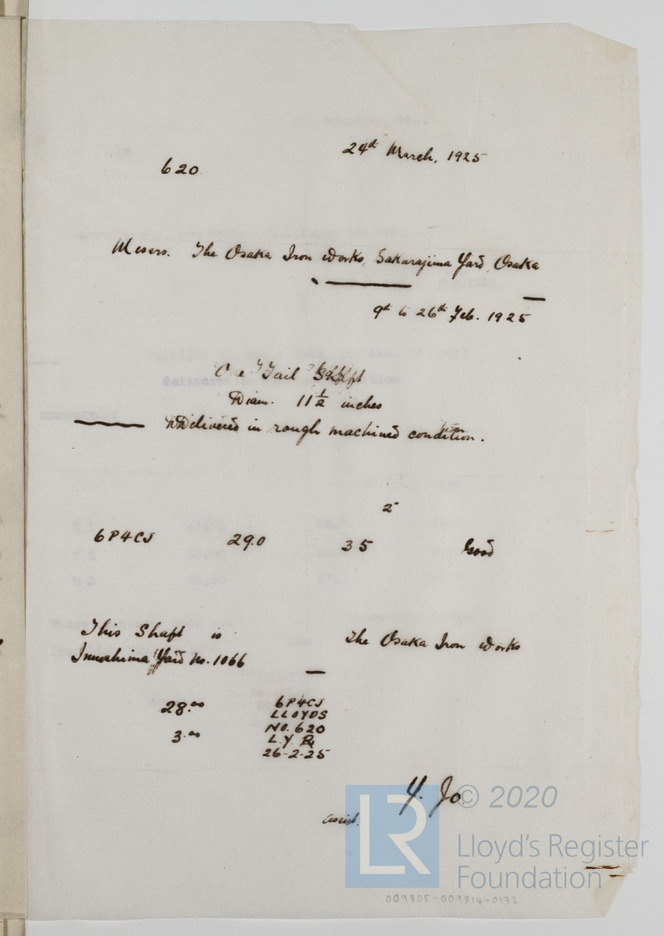 24th March, 1925
620
Messrs. The Osaka Iron Works, Sakurajima Yard, Osaka
9th to 26th Feb. 1925
Tail Shaft
Diam. 11 1/2 inches
Delivered in rough machined condition.
2
6P4CJ 29.0 35 Good
This Shaft is The Osaka Iron Works
Innoshima Yard No. 1066
28.00 6P4CJ
LLOYDS
3.00 No. 620
L.Y.
26-2-25
Y. Jo
assist.
© 2020
LR
Lloyd's Register
Foundation
009805-009814-0172